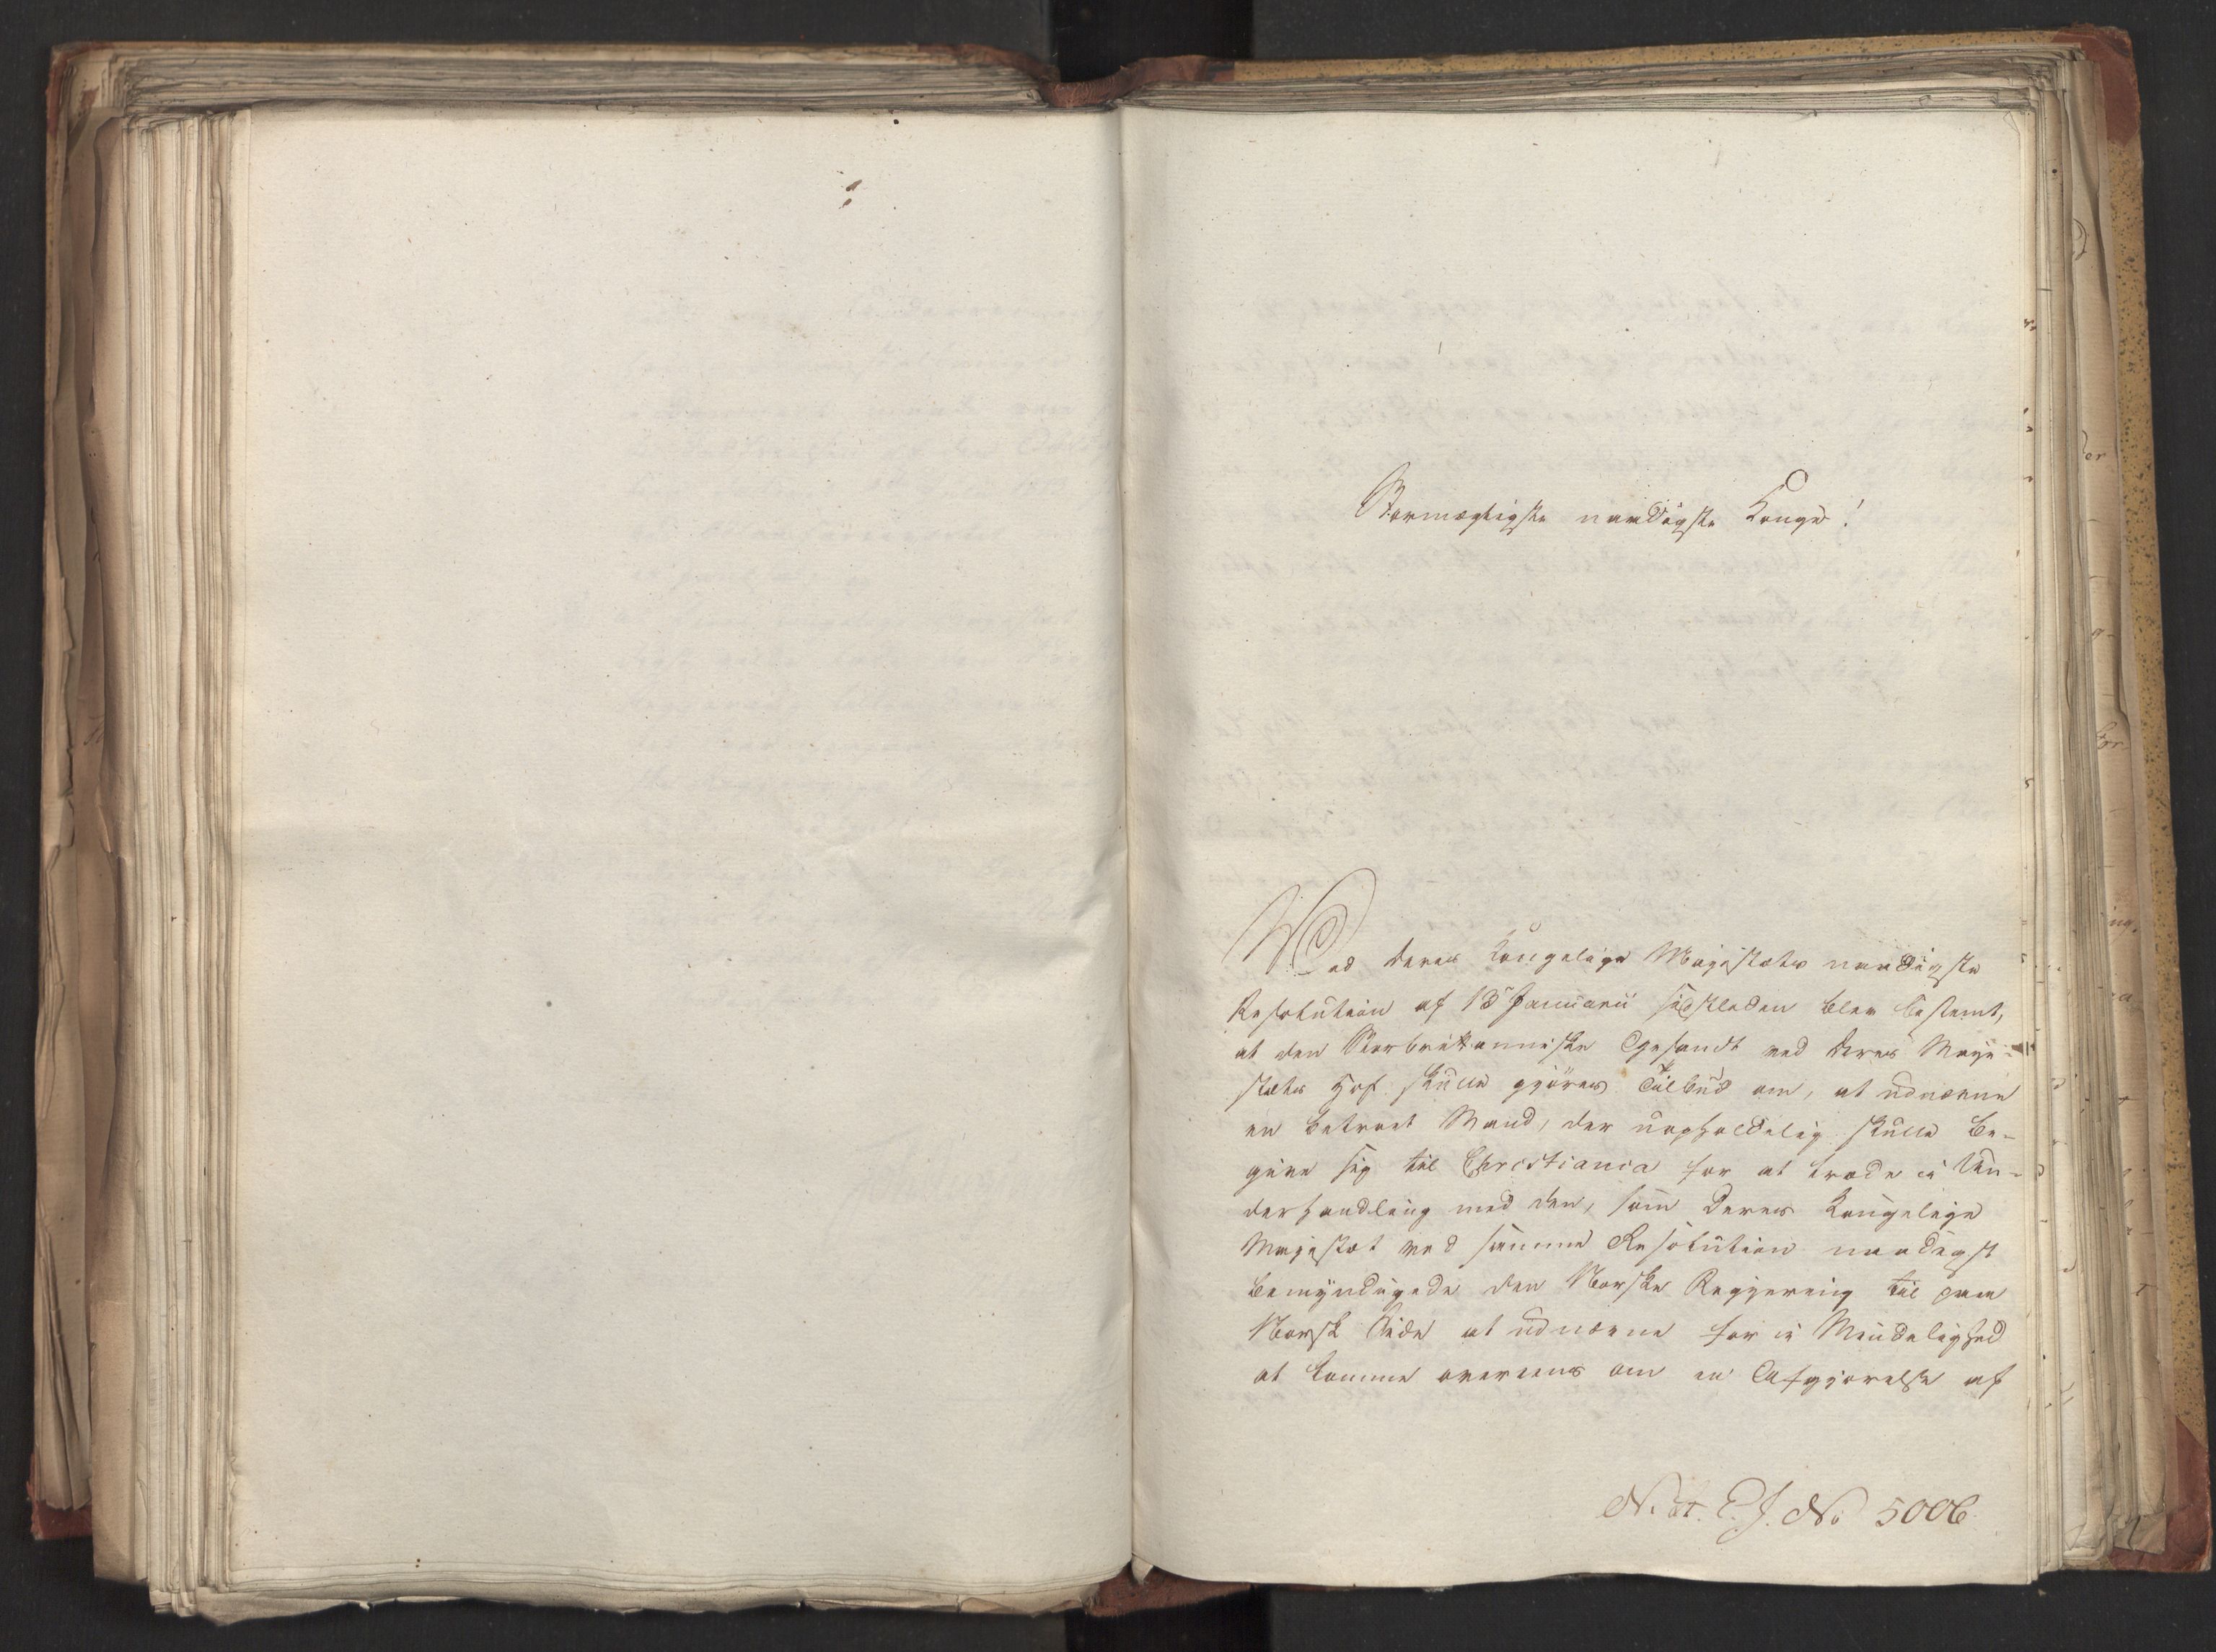 Stormægtigste naadigste Konge!
Ved Deres Kongelige Majestæts naadigste
Resolution af 13 Januarii sidstleden blev bestemt,
at den Storbrittanniske Gesandt ved Deres Maje-
stæts Hof skulle gjøres Tilbud om, at udnævne
en betroet Mand, der uopholdelig skulle be-
give sig til Christiania for at træde i Un-
derhandling med den, som Deres Kongelige
Majestæt ved samme Resolution naadigst
bemyndigede den Norske Regjering til paa
Norsk Side at udnævne for i Mindelighed
at komme overeens om en Afgjørelse af
N. St. E. J. No 5006